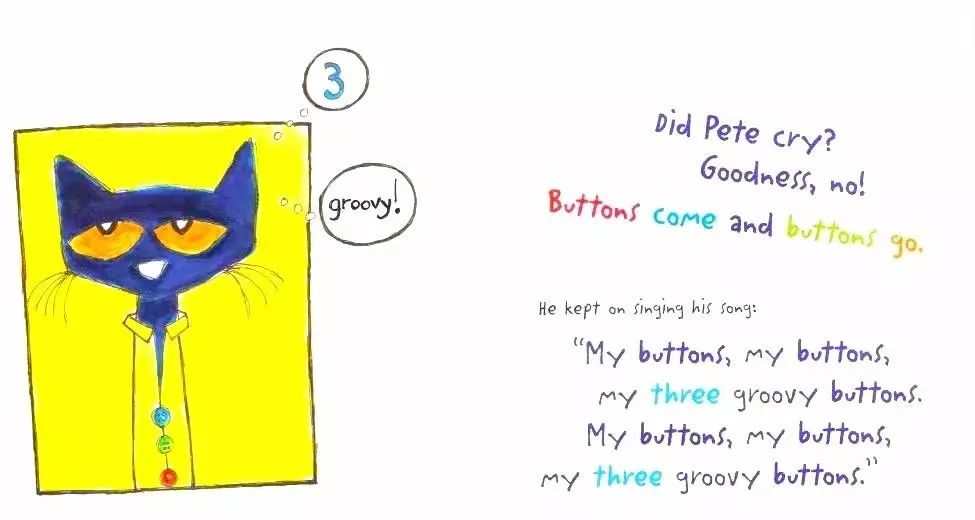 3
groovy!
Did Pete cry?
Goodness, no!
Buttons come and buttons go.
He kept on singing his song:
“My buttons, my buttons,
my three groovy buttons.
My buttons, my buttons,
my three groovy buttons.”